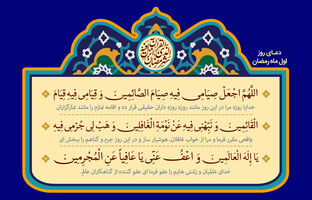 دعای روز
اول ماه رمضان
اللَّهُمَّ اجْعَلْ صِيَامِي فِيهِ صِيَامَ الصَّائِمِينَ وَ قِيَامِي فِيهِ قِيَامَ
خدایا روزه مرا در این روز مانند روزه روزه داران حقیقی قرار ده و اقامه نمازم را مانند نمازگزاران
الْقَائِمِينَ وَ نَبِّهْنِي فِيهِ عَنْ نَوْمَةِ الْغَافِلِينَ وَ هَبْ لِي جُرْمِي فِيهِ
واقعی مقرر فرما و مرا از خواب غافلان، هوشیار ساز و در این روز جرم و گناهم را ببخش ای
يَا إِلَهَ الْعَالَمِينَ وَ اعْفُ عَنِّي يَا عَافِياً عَنِ الْمُجْرِمِينَ
خدای عالمیان و زشتی هایم را عفو فرما ای عفو کننده از گناهکاران عالم